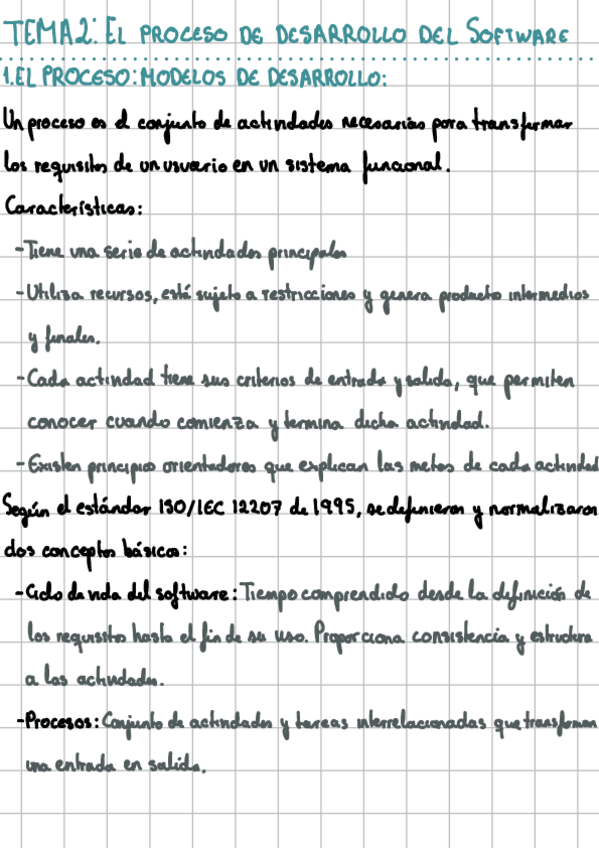 TEMA 2: EL PROCESO DE DESARROLLO DEL SOFTWARE
1. EL PROCESO: MODELOS DE DESARROLLO:
Un proceso es el conjunto de actividades necesarias para transformar
los requisitos de un usuario en un sistema funcional.
Características:
-Tiene una serie de actividades principales
-Utiliza recursos, está sujeto a restricciones y genera productos intermedios
y finales.
-Cada actividad tiene sus criterios de entrada y salida, que permiten
conocer cuando comienza y termina dicha actividad.
-Existen principios orientadores que explican las metas de cada actividad
Según el estándar ISO/IEC 12207 de 1995, se definieron y normalizaron
dos conceptos básicos:
-Ciclo de vida del software: Tiempo comprendido desde la definición de
los requisitos hasta el fin de su uso. Proporciona consistencia y estructura
a las actividades.
-Procesos: Conjunto de actividades y tareas interrelacionadas que transforman
una entrada en salida.